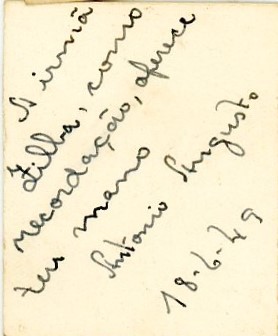 A irmã
Zilba, como
recordação, oferece
teu mano
Antonio Augusto
18-6-49